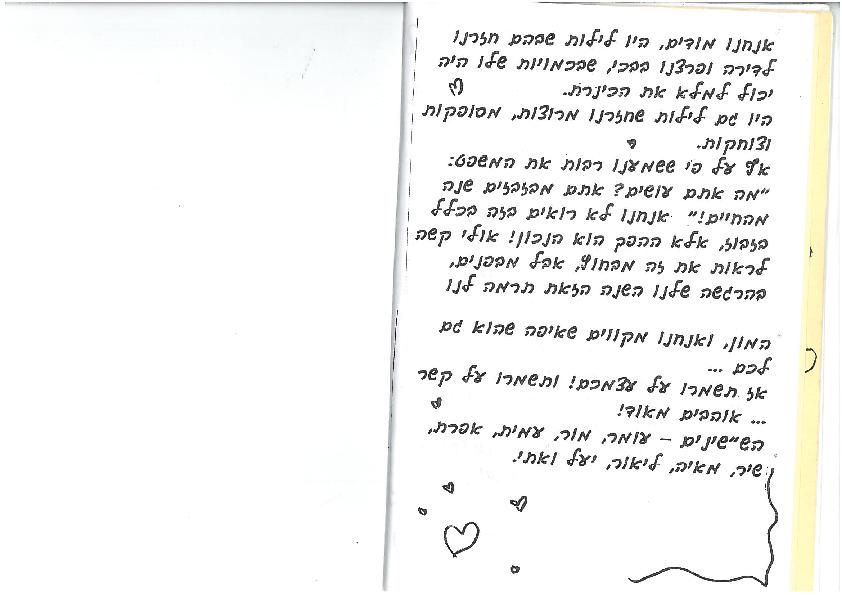 אנחנו מודים, היו לילות שבהם חזרנו
לדירה ופרצנו בבכי, שבכמויות שלו היה
יכול למלא את הכינרת.
היו גם לילות שחזרנו מרוצות, מסופקות
וצוחקות.
אף על פי ששמענו רבות את המשפט:
"מה אתם עושים? אתם מבזבזים שנה
מהחיים!" אנחנו לא רואים בזה בכלל
בזבוז, אלא ההפך הוא הנכון! אולי קשה
לראות את זה מבחוץ, אבל מבפנים,
בהרגשה שלנו השנה הזאת תרמה לנו
המון, ואנחנו מקווים שאיפה שהוא גם
לכם ...
אז תשמרו על עצמכם! ותשמרו על קשר
... אוהבים מאוד!
הש"שינים – עומר, מור, עמית, אפרת,
שיר, מאיה, ליאור, יעל ואתי.